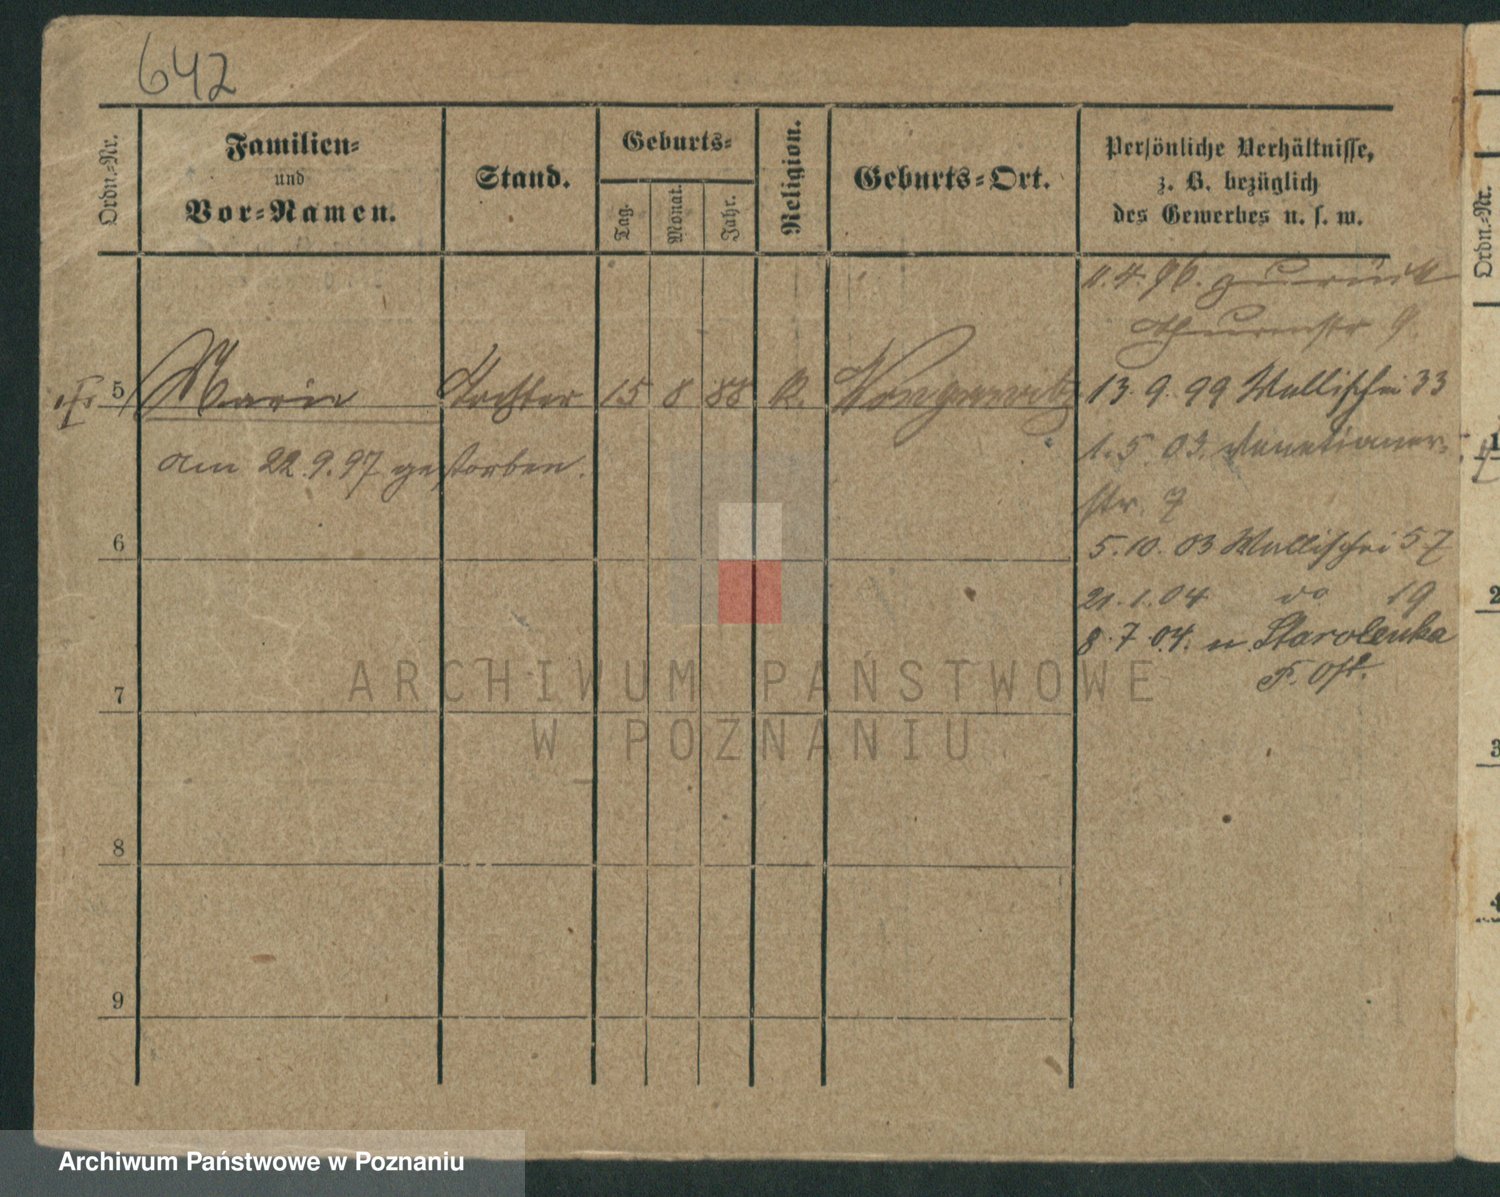 642
Ordn.-Nr.
Familien-
und
Vor-Namen.
Stand.
Geburts-
Tag.
Monat.
Jahr.
Religion.
Geburts-Ort.
Persönliche Verhältnisse,
z. B. bezüglich
des Gewerbes u. s. w.
Ordn.-Nr.
4.96. zurück
Thurmstr 9.
5 Marie Tochter 15 8 88 K.
13.9.99 Wallischei 33
am 22.9.97 gestorben.
1.5.03. Venetianer-
str. 7
6
5.10.03 Wallischei 57
21.1.04 do 19
8.7.04. n. Starolenka
P. Ost.
7
8
9
1
2
3
4
ARCHIWUM PAŃSTWOWE
W POZNANIU
Archiwum Państwowe w Poznaniu